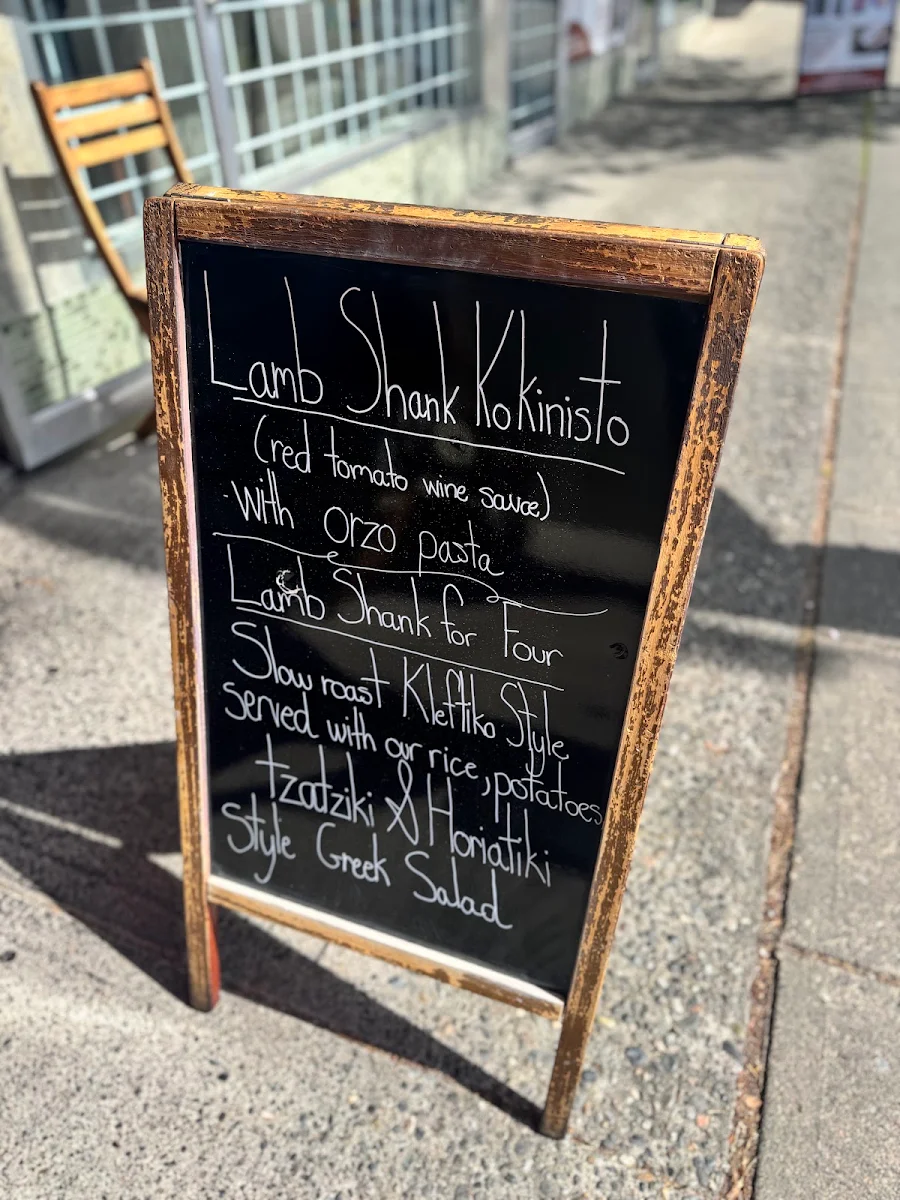 Lamb Shank Kokinisto
(red tomato wine sauce)
with orzo pasta
Lamb Shank for Four
Slow roast Kleftiko Style
served with our rice, potatoes
tzatziki & Horiatiki
Style Greek Salad